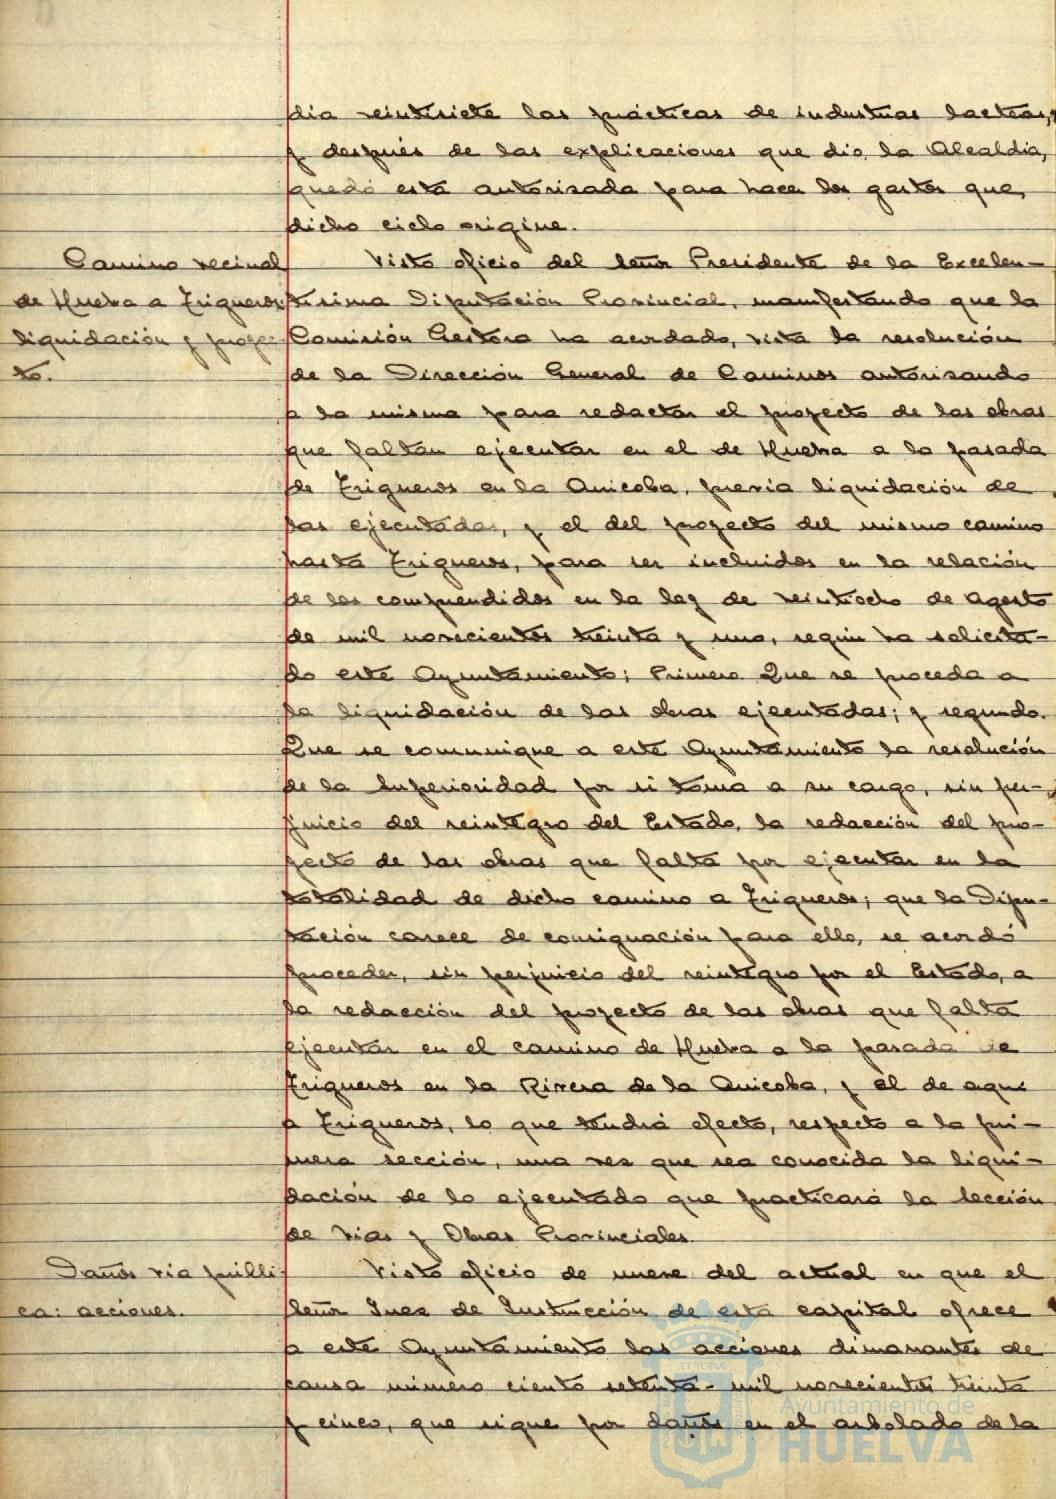 dia veintisiete las prácticas de industrias lacteas,
y después de las explicaciones que dio la Alcaldia,
quedó esta autorizada para hacer los gastos que
dicho ciclo origine.
Camino vecinal
de Huelva a Trigueros:
liquidación y proyec-
to.
Visto oficio del señor Presidente de la Excelen-
tisima Diputación Provincial, manifestando que la
Comisión Gestora ha acordado, vista la resolución
de la Dirección General de Caminos autorizando
a la misma para redactar el proyecto de las obras
que faltan ejecutar en el de Huelva a la pasada
de Trigueros en la Anicoba, previa liquidación de
las ejecutadas, y el del proyecto del mismo camino
hasta Trigueros, para ser incluidos en la relación
de los comprendidos en la ley de veintiocho de Agosto
de mil novecientos treinta y uno, según ha solicita-
do este Ayuntamiento; Primero. Que se proceda a
la liquidación de las obras ejecutadas; y segundo.
Que se comunique a este Ayuntamiento la resolución
de la Superioridad por si toma a su cargo, sin per-
juicio del reintegro del Estado, la redacción del pro-
yecto de las obras que falta por ejecutar en la
totalidad de dicho camino a Trigueros; que la Dipu-
tación carece de consignación para ello, se acordó
proceder, sin perjuicio del reintegro por el Estado, a
la redacción del proyecto de las obras que falta
ejecutar en el camino de Huelva a la pasada de
Trigueros en la Rivera de la Anicoba, y el de aqui
a Trigueros, lo que tendrá efecto, respecto a la pri-
mera sección, una vez que sea conocida la liqui-
dación de lo ejecutado que practicará la Sección
de Vias y Obras Provinciales.
Daños via públi-
ca: acciones.
Visto oficio de nueve del actual en que el
Señor Juez de Instrucción de esta capital ofrece
a este Ayuntamiento las acciones dimanantes de
causa número ciento setenta-mil novecientos treinta
y cinco, que sigue por daños en el arbolado de la
Ayuntamiento de
HUELVA